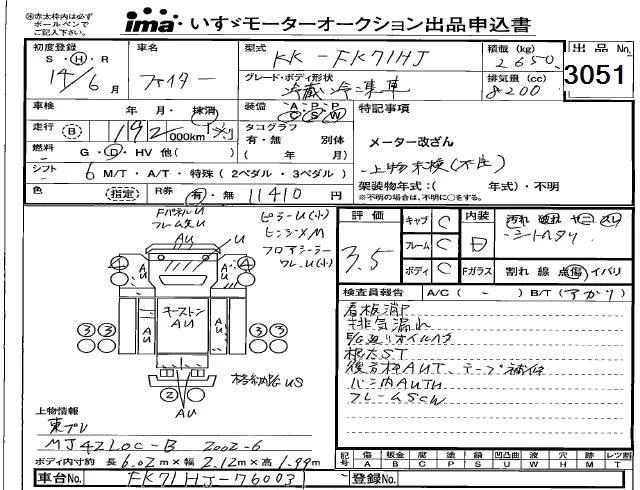 ㊟赤太枠内は必ず
ボールペンで
ご記入下さい。
ima いすゞモーターオークション出品申込書
初度登録
S・H・R
14年
6月
車名
ファイター
型式
KK-FK71HJ
グレード・ボディ形状
冷蔵冷凍車
積載(kg)
2650
排気量(cc)
8200
出品No.
3051
車検 年・月・抹消
装備 A・P・P
C・S・W
特記事項
走行(B) 192,000km
タコグラフ
有・無 別体
(年 月)
メーター改ざん
燃料 G・D・HV 他( )
上物未検(不圧)
シフト 6 M/T・A/T・特殊(2ペダル・3ペダル)
架装物年式:( 年式)・不明
※不明の場合は、不明に○をする。
色 (指定) R券 有・無 11410円
FパネルU
フレーム先U
AU
U
ピラーU(小)
ヒンジXM
フロアシーラー
ワレ、U(小)
評価
3.5
キャブ C
フレーム C
ボディ C
内装
D
Fガラス
汚れ 破れ ヤニ スレ
シートヘタリ
割れ 線 点傷 イバリ
検査員報告 A/C( - ) B/T(アガリ)
4
4
AU
AU
AU
AU
キーストン
AU
3
3
3
3
2
AU
格納PG US
看板消P
排気漏れ
E/G廻りオイルハネ
根太ST
後方枠AUT、テープ補修
バン内AUTU
フレームSCW
上物情報
東プレ
MJ42LOC-B 2002-6
ボディ内寸約 長6.02m×幅2.12m×高1.99m
記号 傷 板金 腐 塗 押 錆 凹凸曲 波 穴 跡 レツ割
A B C P S U W H M T
車台No. FK71HJ-76003
登録No.